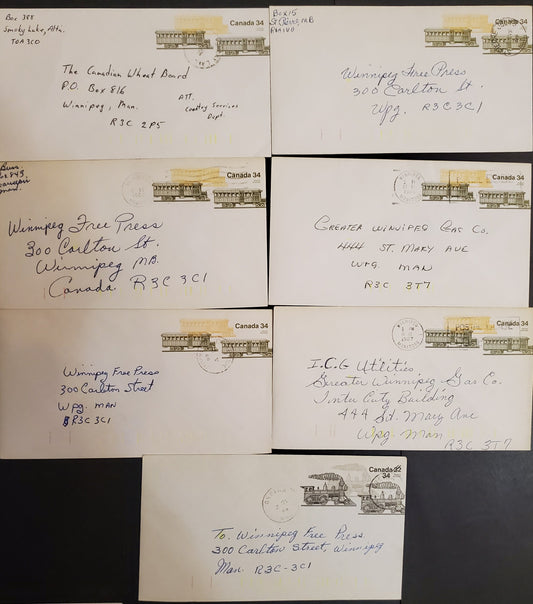 Box 388
Smoky Lake, Alta.
T0A 3C0
Canada 34
The Canadian Wheat Board
P.O. Box 816
Winnipeg, Man.
R3C 2P5
ATT.
Country Services
Dept.
Box 15
Canada 34
Winnipeg Free Press
300 Carlton St.
Wpg. R3C 3C1
Canada 34
Winnipeg Free Press
300 Carlton St.
Winnipeg MB.
Canada R3C 3C1
Canada 34
Greater Winnipeg Gas Co.
444 St. Mary Ave
Wpg. Man
R3C 3T7
Canada 34
Winnipeg Free Press
300 Carlton Street
Wpg. Man
R3C 3C1
Canada 34
I.C.G Utilities
Greater Winnipeg Gas Co.
Inter City Building
444 St. Mary Ave
Wpg. Man
R3C 3T7
Canada 32
34
To. Winnipeg Free Press
300 Carlton Street, Winnipeg
Man. R3C-3C1